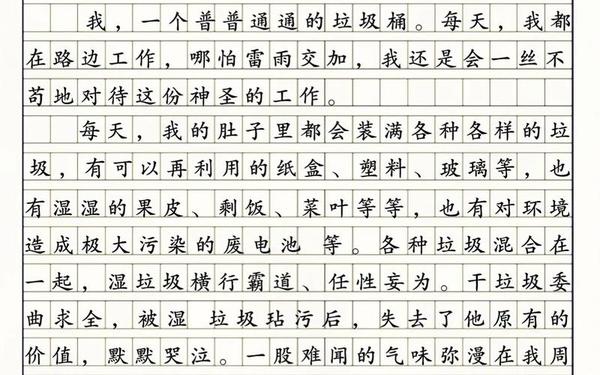 我，一个普普通通的垃圾桶。每天，我都
在路边工作，哪怕雷雨交加，我还是会一丝不
苟地对待这份神圣的工作。
每天，我的肚子里都会装满各种各样的垃
圾，有可以再利用的纸盒、塑料、玻璃等，也
有湿湿的果皮、剩饭、菜叶等等，也有对环境
造成极大污染的废电池 等。各种垃圾混合在
一起，湿垃圾横行霸道、任性妄为。干垃圾委
曲求全，被湿 垃圾玷污后，失去了他原有的
价值，默默哭泣。一股难闻的气味弥漫在我周